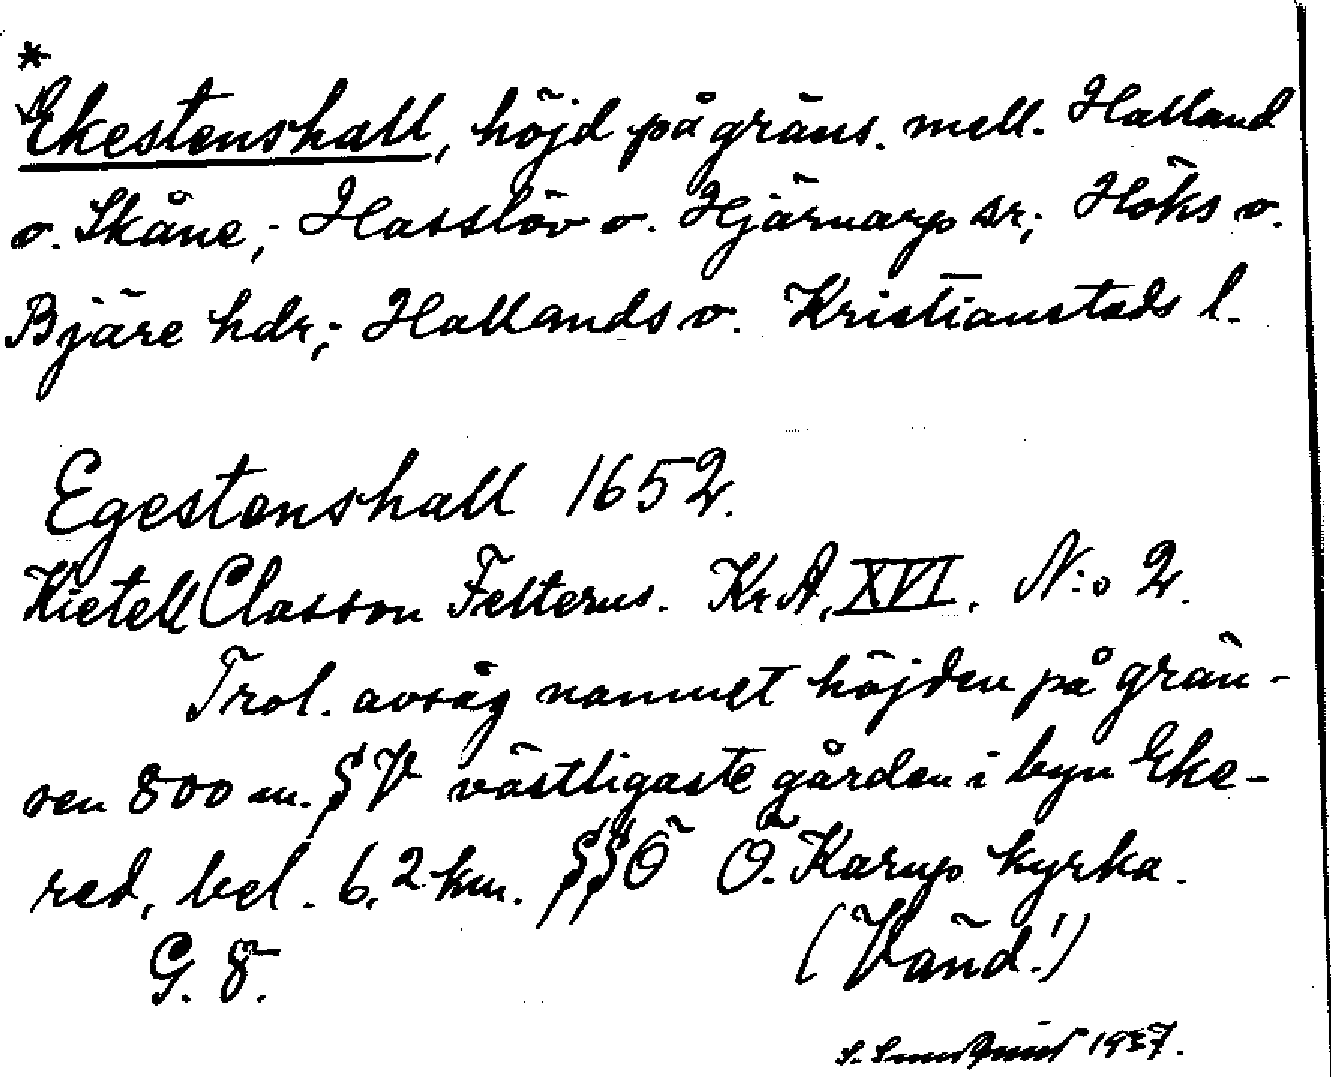 *
Ekestenshall, höjd på gräns. mell. Halland
o. Skåne; Hasslöv o. Hjärnarp sr; Höks o.
Bjäre hdr; Hallands o. Kristianstads l.
Egestenshall 1652.
Kietell Classon Felterus. Kr.A. XVI. N:o 2.
Trol. avsåg namnet höjden på grän-
sen 800 m. SV västligaste gården i byn Eke-
red, bel. 6,2 km. SSÖ Ö. Karup kyrka.
G. 8. (Vänd!)
1937.